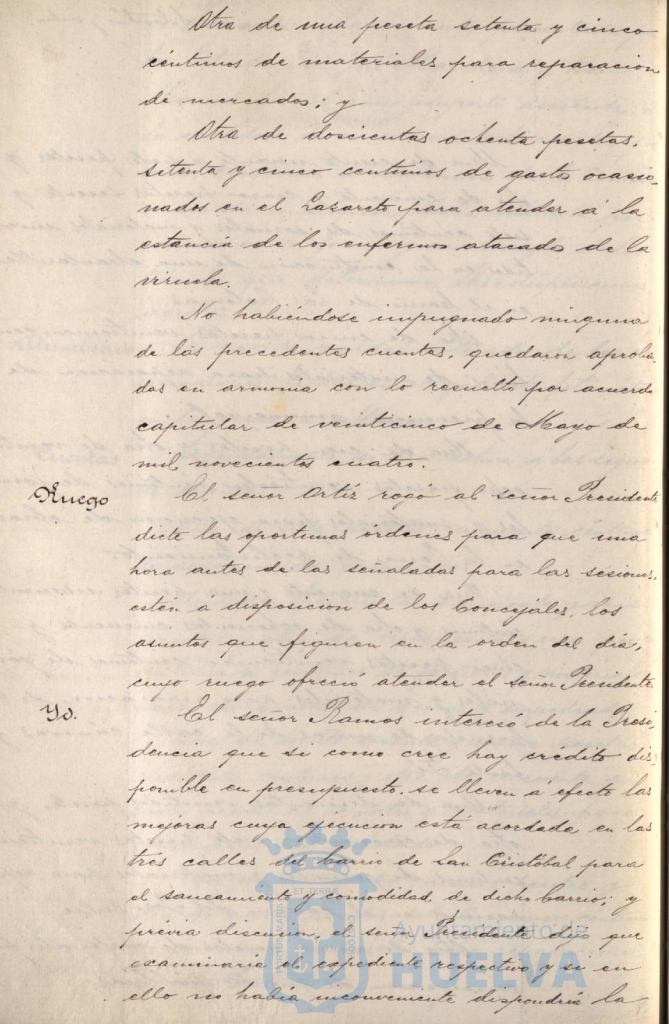 Otra de una peseta setenta y cinco
céntimos de materiales para reparacion
de mercados; y
Otra de doscientas ochenta pesetas,
setenta y cinco céntimos de gastos ocasio-
nados en el Lazareto para atender á la
estancia de los enfermos atacados de la
viruela.
No habiéndose impugnado ninguna
de las precedentes cuentas, quedaron aproba-
das en armonía con lo resuelto por acuerdo
capitular de veinticinco de Mayo de
mil novecientos cuatro.
Ruego El señor Ortíz rogó al señor Presidente
dicte las oportunas órdenes para que una
hora antes de las señaladas para las sesiones,
estén á disposicion de los Concejales, los
asuntos que figuren en la orden del día,
cuyo ruego ofreció atender el señor Presidente.
Yd. El señor Ramos interesó de la Presi-
dencia que si como cree hay crédito dis-
ponible en presupuesto, se lleven á efecto las
mejoras cuya ejecucion está acordada en las
trés calles del barrio de San Cristóbal para
el saneamiento y comodidad de dicho barrio; y
prévia discusion, el señor Presidente dijo que
examinaría el expediente respectivo y si en
ello no había inconveniente dispondría la
Ayuntamiento de
HUELVA